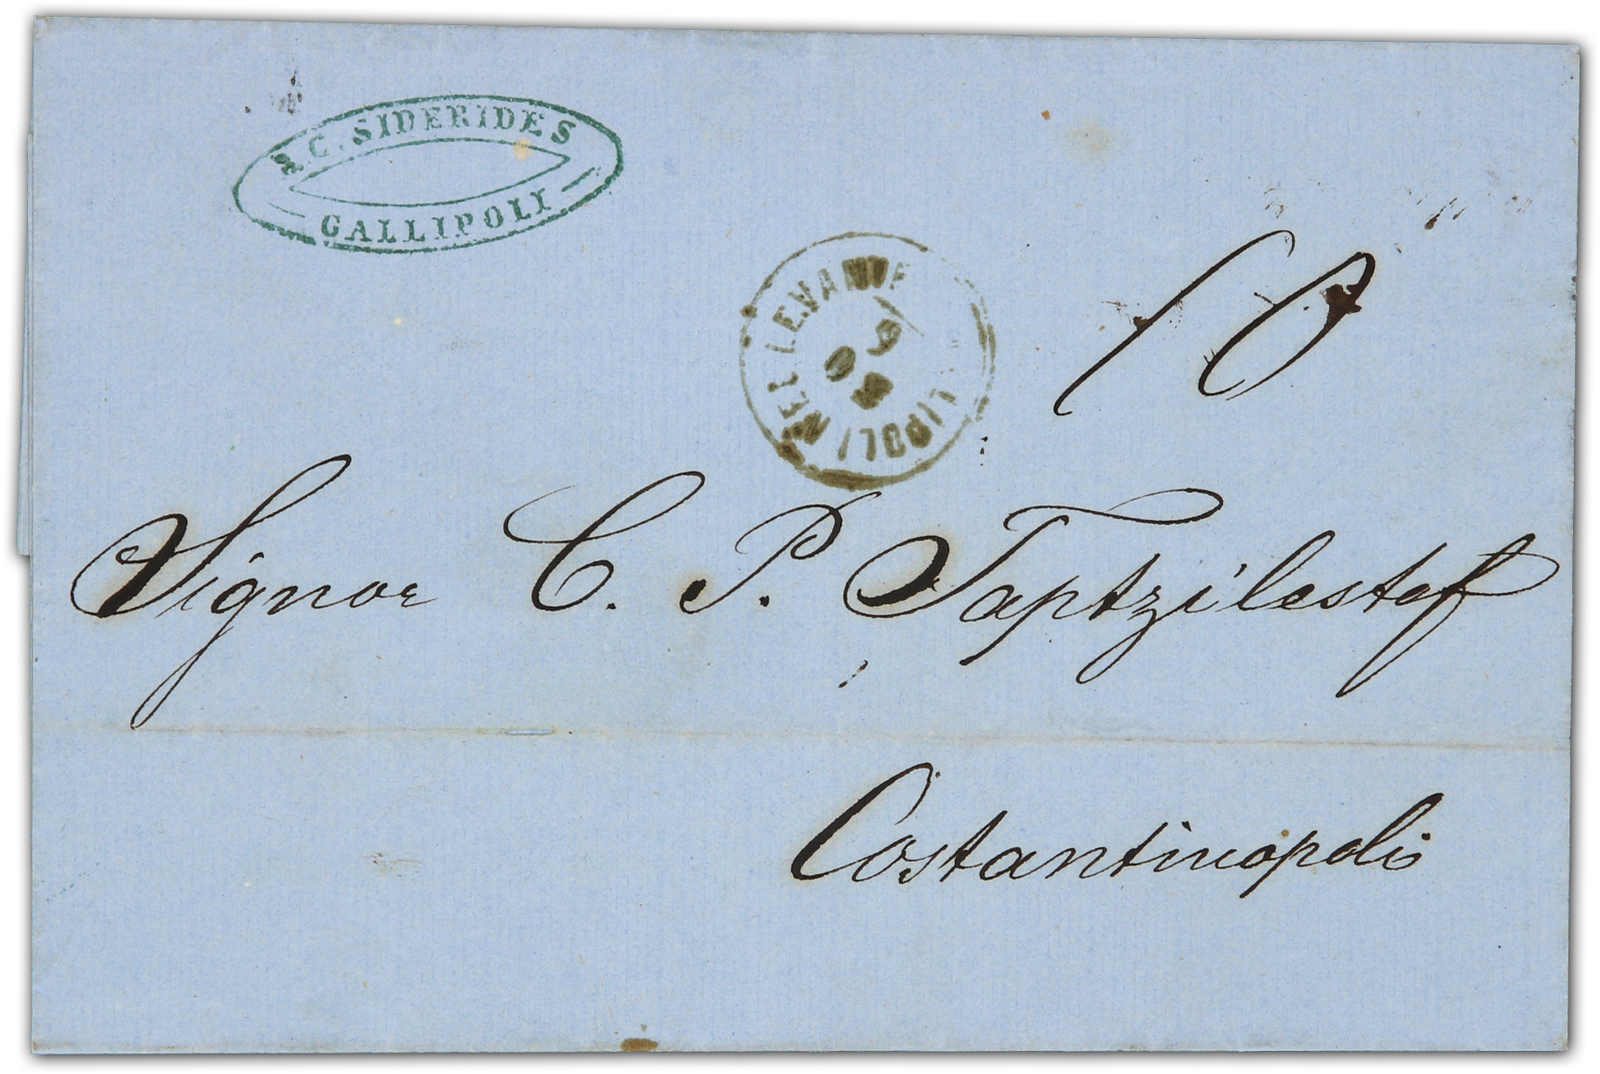 C. SIDERIDES
GALLIPOLI
10
NEL LEVANTE
Signor C. P. Taptzilestef
Costantinopoli